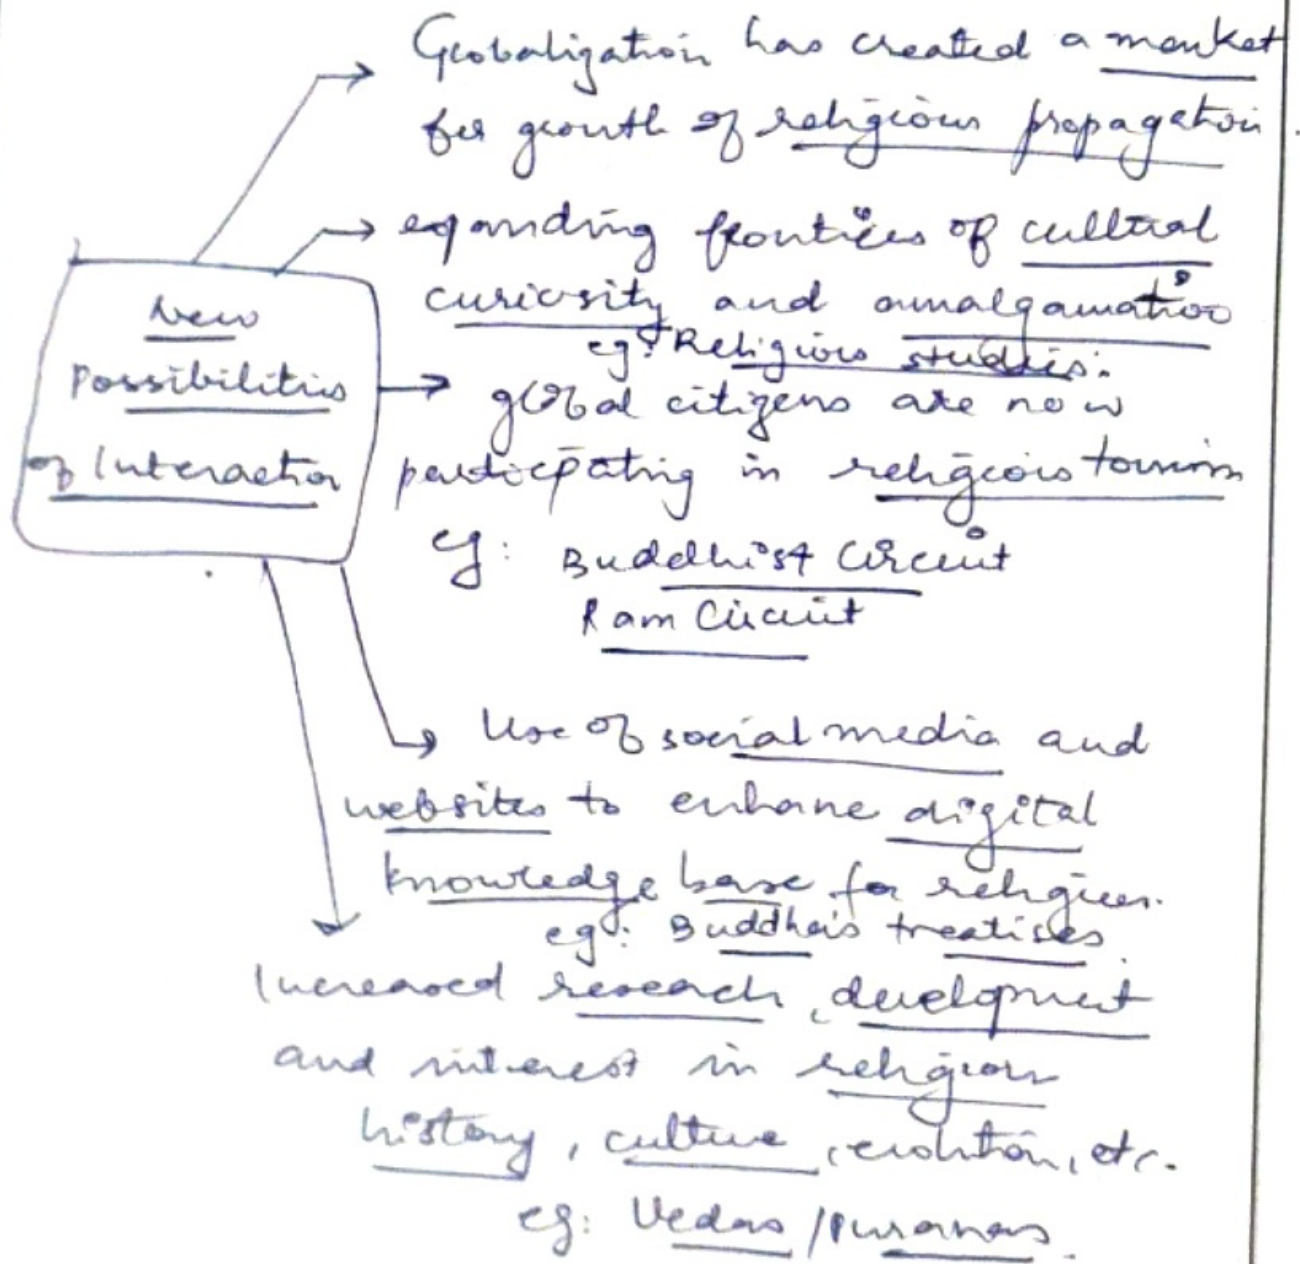 New
Possibilities
of Interaction
Globalization has created a market
for growth of religious propagation.
expanding frontiers of cultural
curiosity and amalgamation
eg: Religious studies.
global citizens are now
participating in religious tourism
eg: Buddhist Circuit
Ram Circuit
Use of social media and
websites to enhance digital
knowledge base for religion.
eg: Buddha's treatises.
Increased research, development
and interest in religion
history, culture, evolution, etc.
eg: Vedas / Puranas.